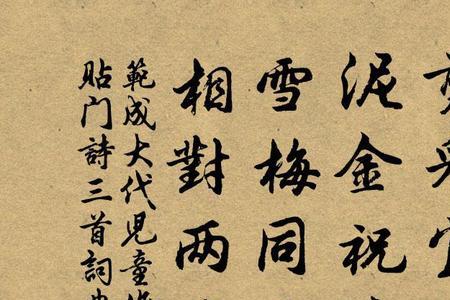 泥金祝
雪梅同
相對两
範成大代児童
貼门詩三首詞